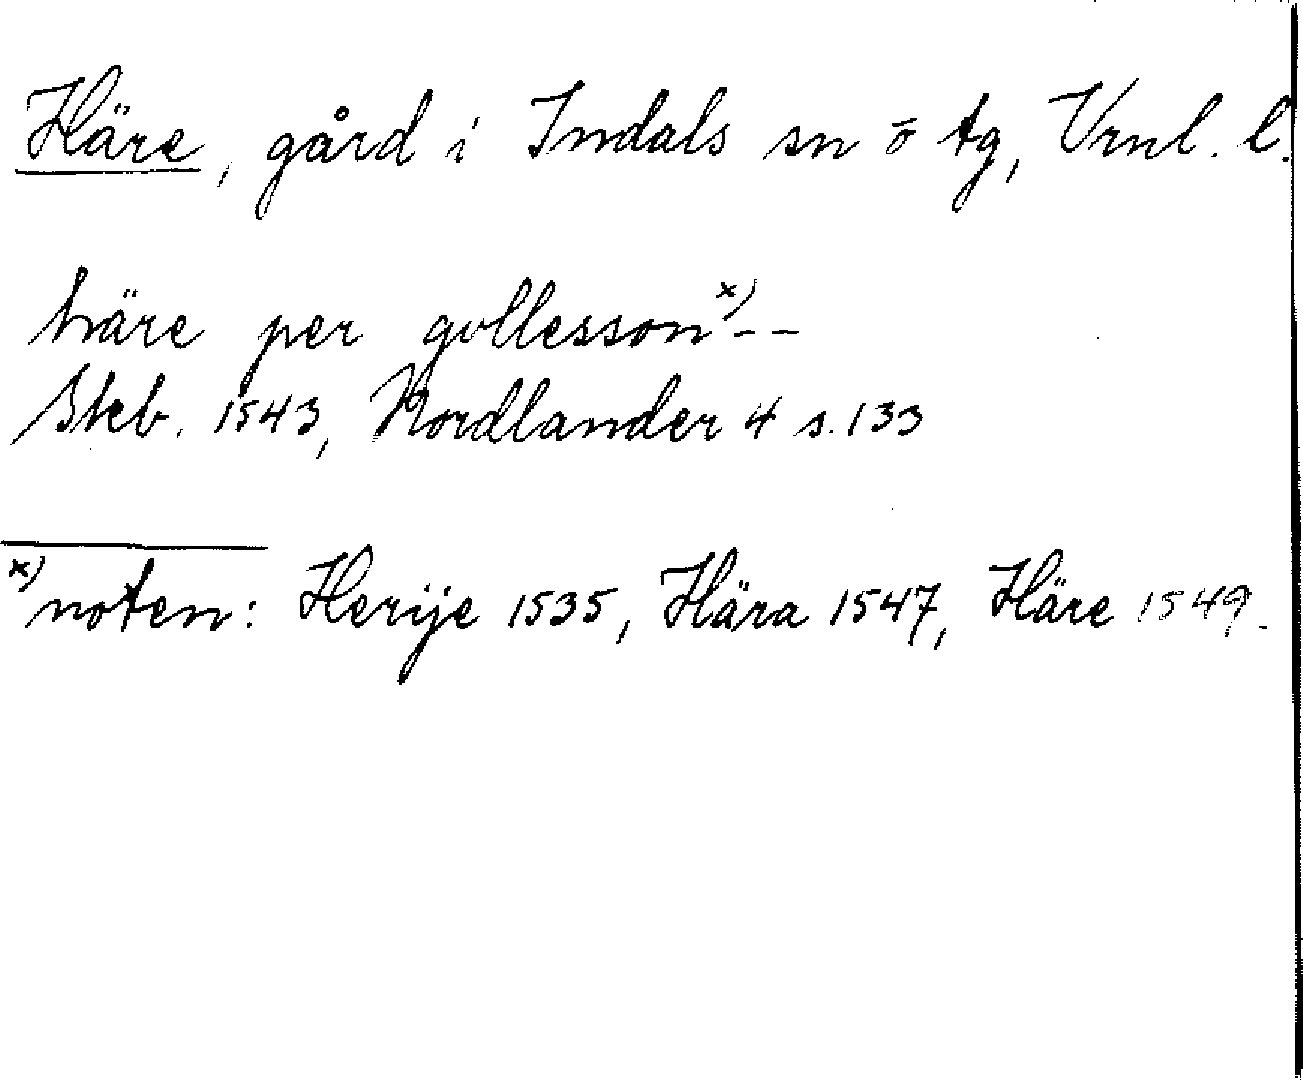 Häre, gård i Indals sn o tg, Vrnl. l.
häre per gollesson x) - -
Skb. 1543, Nordlander 4 s. 133
x) noten: Herije 1535, Hära 1547, Häre 1549.